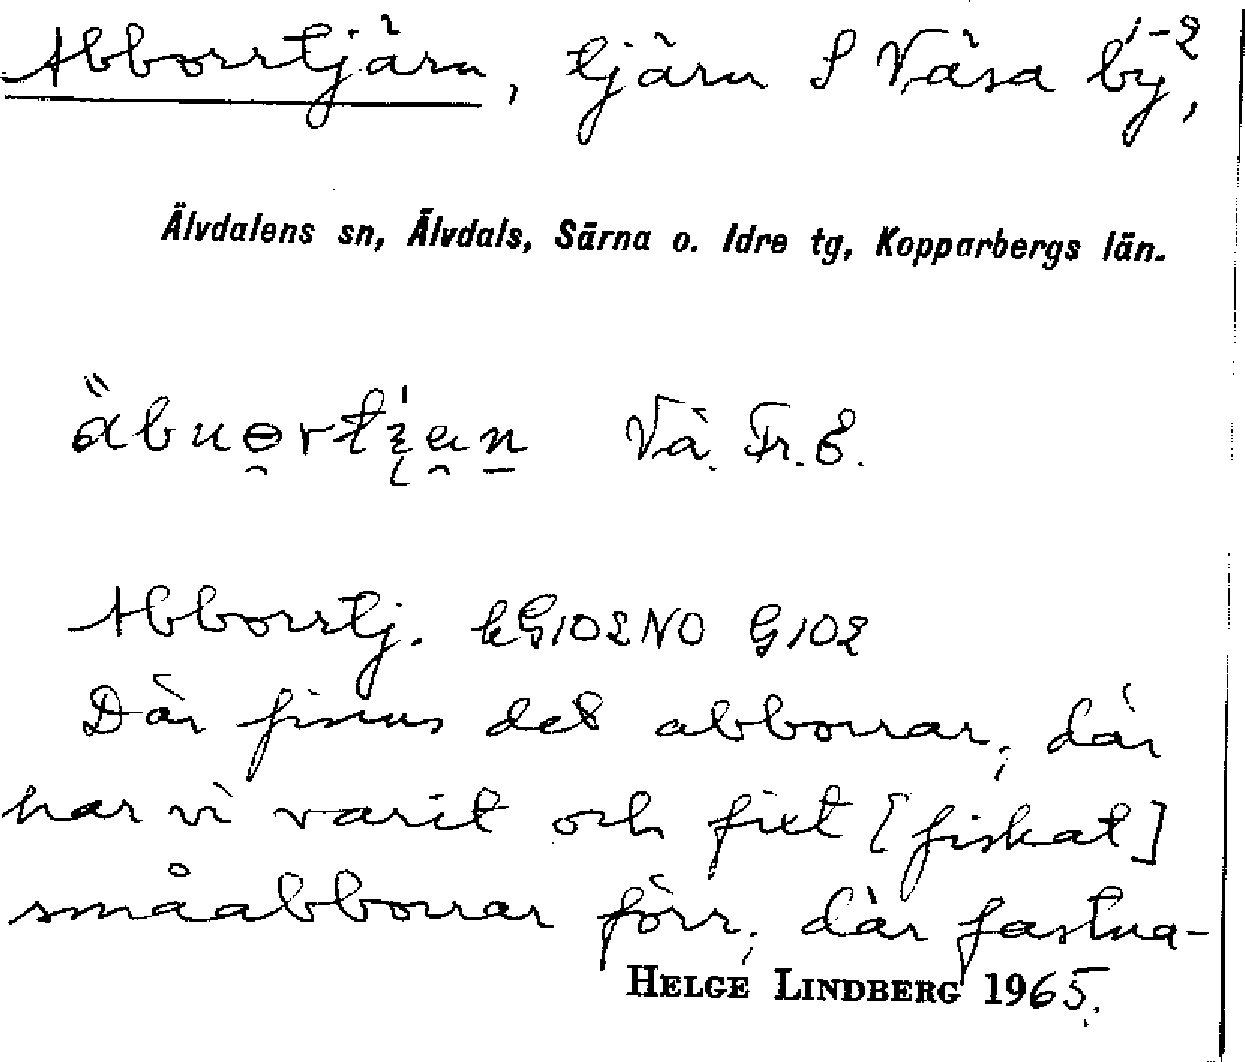 Abborrtjärn, tjärn S Väsa by, 1-2
Älvdalens sn, Älvdals, Särna o. Idre tg, Kopparbergs län.
Vä. Fr. E.
Abborrtj. kG102NO G102
Där finns det abborrar, där
har vi varit och fixt [fiskat]
småabborrar förr, där fastna-
HELGE LINDBERG 1965.